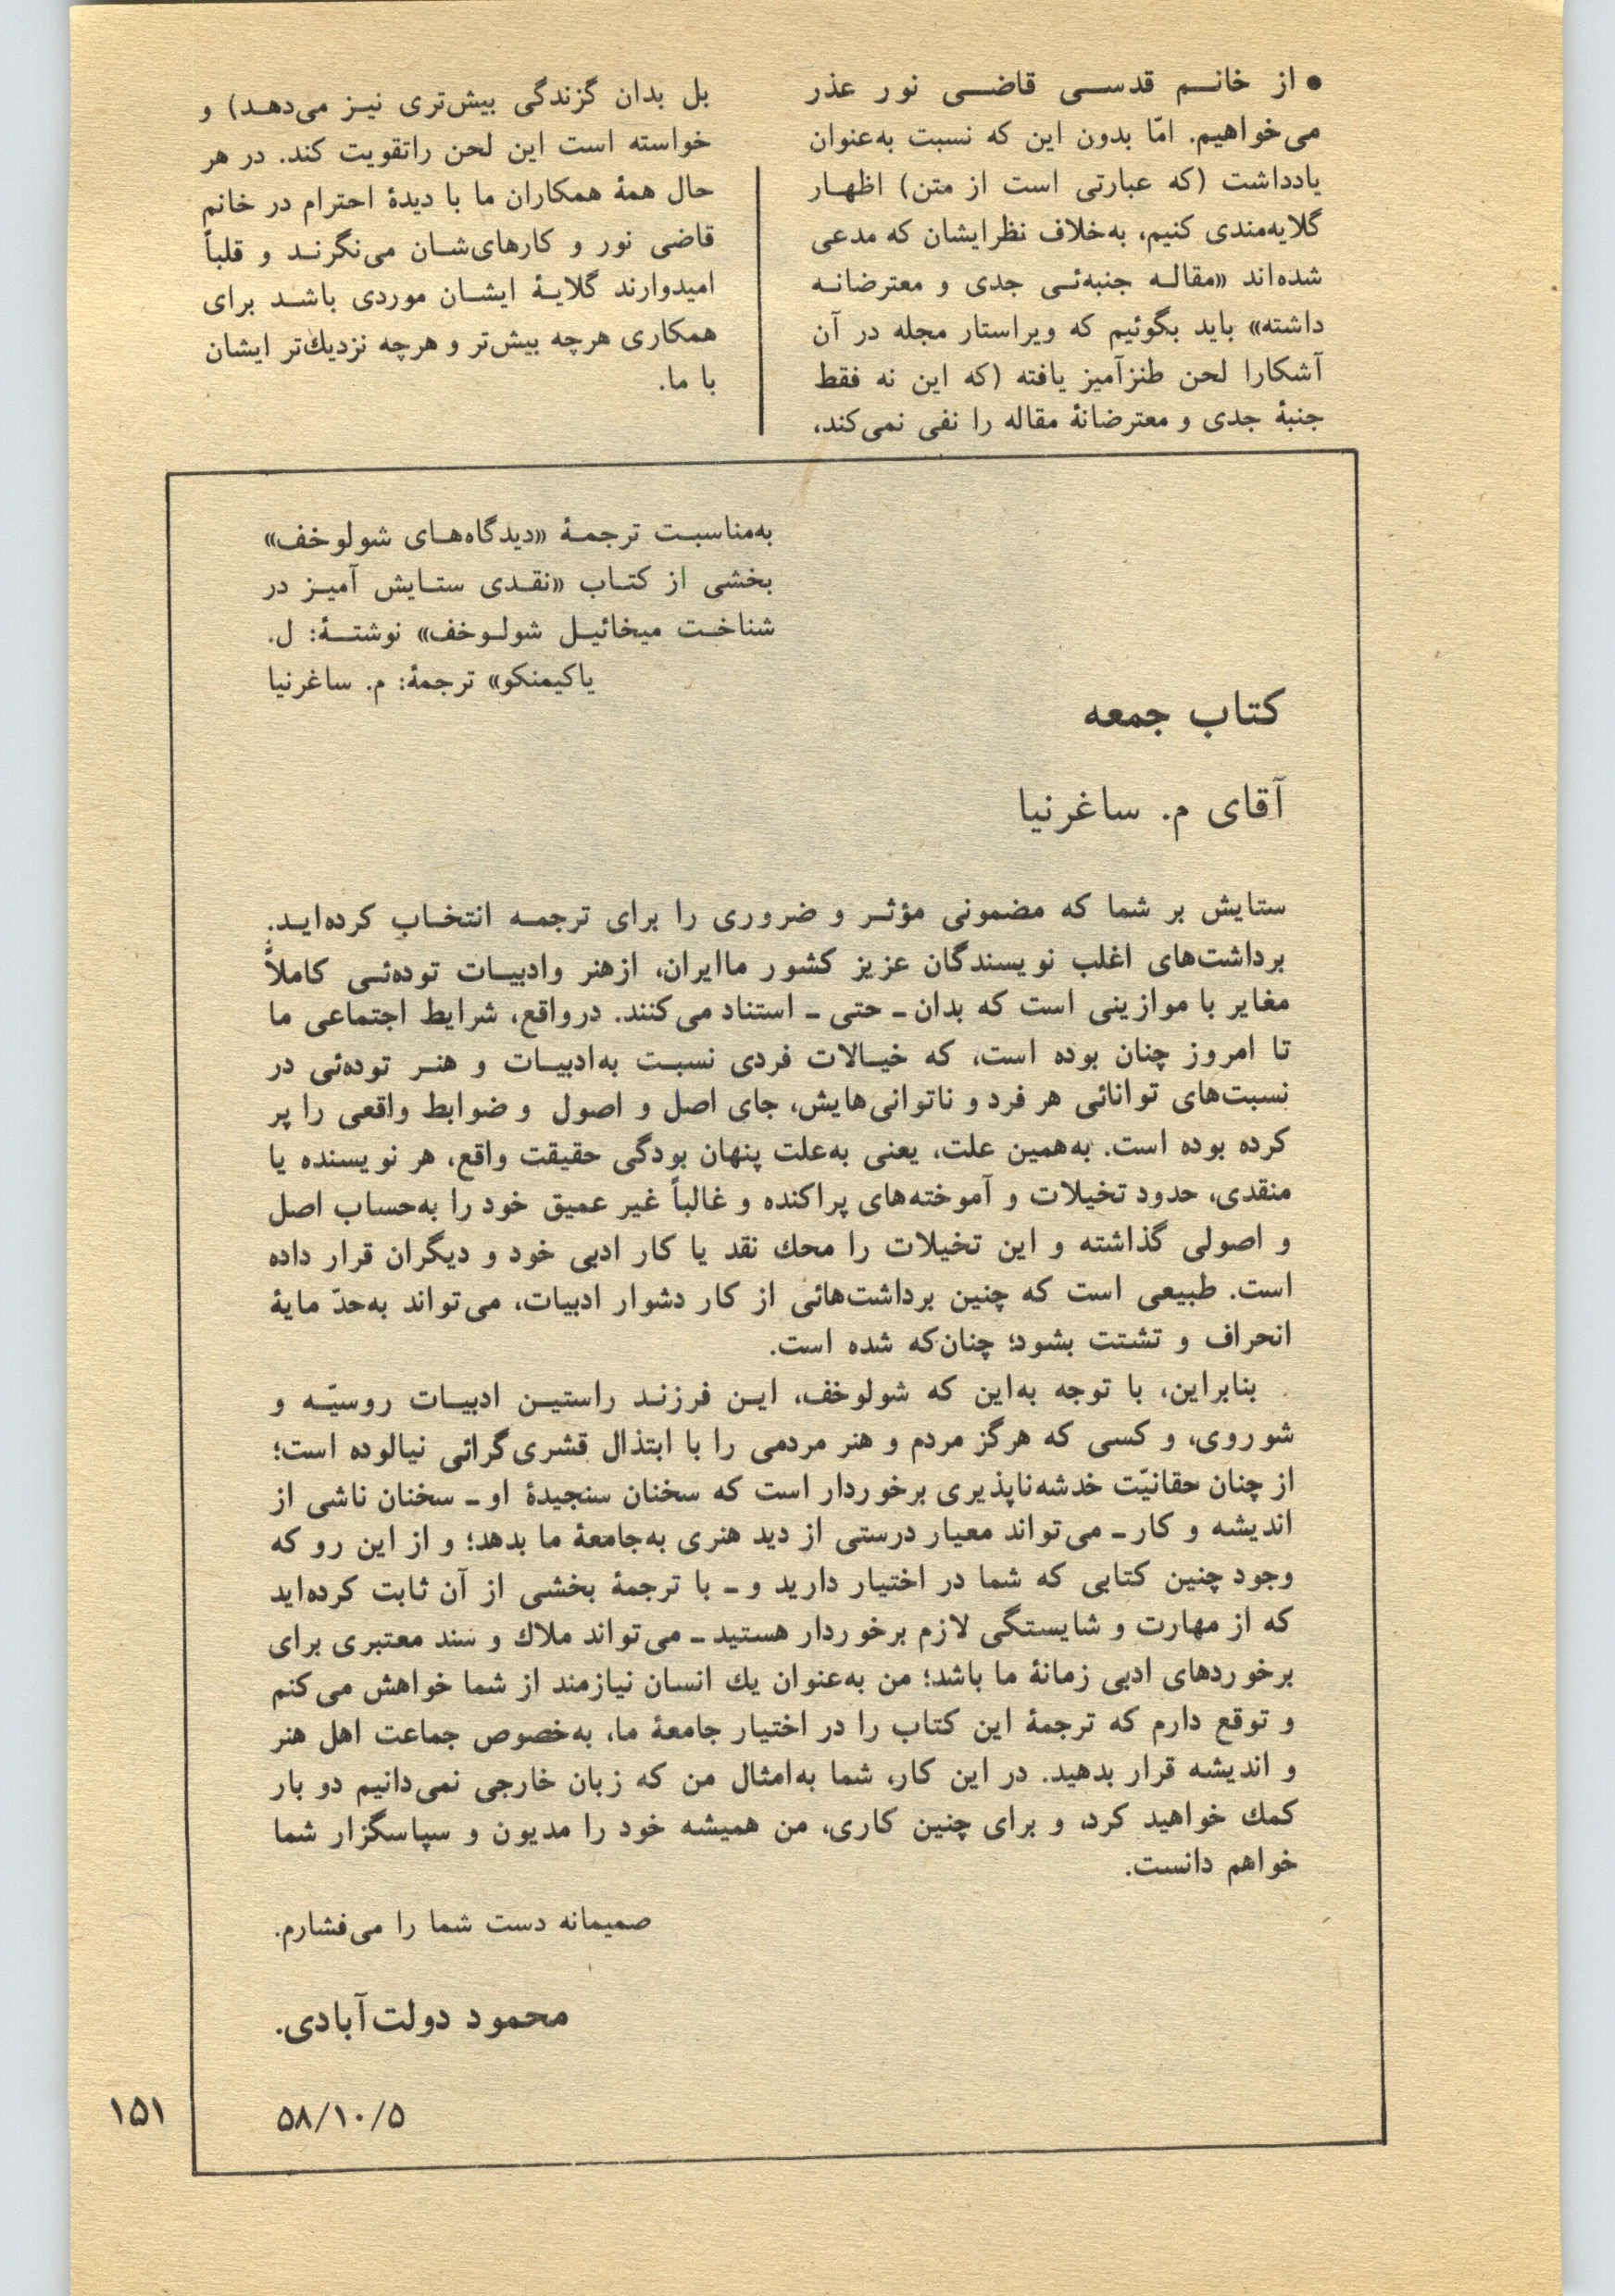 ● از خانـــم قدســـی قاضـــی نور عذر
می‌خواهیم. امّا بدون این که نسبت به‌عنوان
یادداشت (که عبارتی است از متن) اظهـار
گلایه‌مندی کنیم، به‌خلاف نظرایشان که مدعی
شده‌اند «مقالـه جنبه‌ئـی جدی و معترضانـه
داشته» باید بگوئیم که ویراستار مجله در آن
آشکارا لحن طنزآمیز یافته (که این نه فقط
جنبهٔ جدی و معترضانهٔ مقاله را نفی نمی‌کند،
بل بدان گزندگی بیش‌تری نیـز می‌دهـد) و
خواسته است این لحن راتقویت کند. در هر
حال همهٔ همکاران ما با دیدهٔ احترام در خانم
قاضی نور و کارهای‌شـان می‌نگرنـد و قلباً
امیدوارند گلایـهٔ ایشـان موردی باشـد برای
همکاری هرچه بیش‌تر و هرچه نزدیك‌تر ایشان
با ما.
به‌مناسبـت ترجمـهٔ «دیدگاه‌هـای شولوخف»
بخشی از کتـاب «نقـدی ستـایش آمیـز در
شناخـت میخائیـل شولـوخف» نوشتـهٔ: ل.
یاکیمنکو» ترجمهٔ: م. ساغرنیا
کتاب جمعه
آقای م. ساغرنیا
ستایش بر شما که مضمونی مؤثـر و ضروری را برای ترجمـه انتخـاب کرده‌ایـد.
برداشت‌های اغلب نویسندگان عزیز کشور ماایران، ازهنر وادبیـات توده‌ئـی کاملاً
مغایر با موازینی است که بدان ـ حتی ـ استناد می‌کنند. درواقع، شرایط اجتماعی ما
تا امروز چنان بوده است، که خیـالات فردی نسبـت به‌ادبیـات و هنـر توده‌ئی در
نسبت‌های توانائی هر فرد و ناتوانی‌هایش، جای اصل و اصول و ضوابط واقعی را پر
کرده بوده است. به‌همین علت، یعنی به‌علت پنهان بودگی حقیقت واقع، هر نویسنده یا
منقدی، حدود تخیلات و آموخته‌های پراکنده و غالباً غیر عمیق خود را به‌حساب اصل
و اصولی گذاشته و این تخیلات را محك نقد یا کار ادبی خود و دیگران قرار داده
است. طبیعی است که چنین برداشت‌هائی از کار دشوار ادبیات، می‌تواند به‌حدّ مایهٔ
انحراف و تشتت بشود؛ چنان‌که شده است.
بنابراین، با توجه به‌این که شولوخف، ایـن فرزنـد راستیـن ادبیـات روسیّـه و
شوروی، و کسی که هرگز مردم و هنر مردمی را با ابتذال قشری‌گرائی نیالوده است؛
از چنان حقانیّت خدشه‌ناپذیری برخوردار است که سخنان سنجیدهٔ او ـ سخنان ناشی از
اندیشه و کار ـ می‌تواند معیار درستی از دید هنری به‌جامعهٔ ما بدهد؛ و از این رو که
وجود چنین کتابی که شما در اختیار دارید و ـ با ترجمهٔ بخشی از آن ثابت کرده‌اید
که از مهارت و شایستگی لازم برخوردار هستید ـ می‌تواند ملاك و سند معتبری برای
برخوردهای ادبی زمانهٔ ما باشد؛ من به‌عنوان یك انسان نیازمند از شما خواهش می‌کنم
و توقع دارم که ترجمهٔ این کتاب را در اختیار جامعهٔ ما، به‌خصوص جماعت اهل هنر
و اندیشه قرار بدهید. در این کار، شما به‌امثال من که زبان خارجی نمی‌دانیم دو بار
کمك خواهید کرد، و برای چنین کاری، من همیشه خود را مدیون و سپاسگزار شما
خواهم دانست.
صمیمانه دست شما را می‌فشارم.
محمود دولت‌آبادی.
۵۸/۱۰/۵
۱۵۱